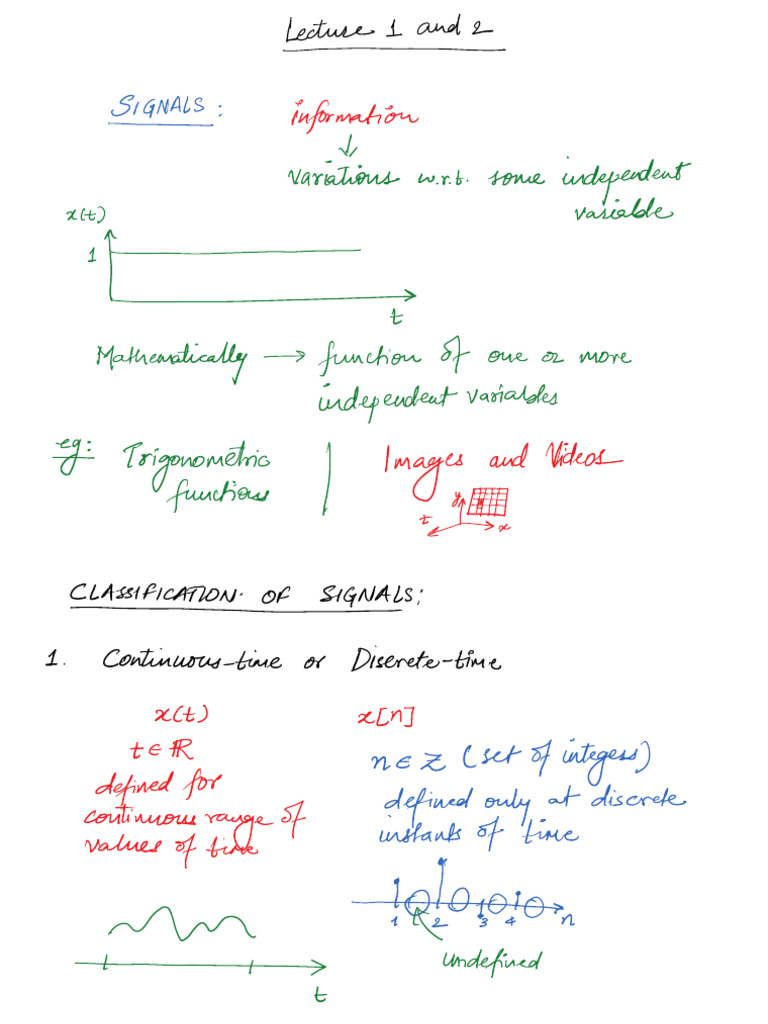 Lecture 1 and 2
SIGNALS: information
variations w.r.t. some independent
variable
x(t)
1
t
Mathematically → function of one or more
independent variables
eg: Trigonometric
functions
Images and Videos
y
t x
CLASSIFICATION OF SIGNALS:
1. Continuous-time or Discrete-time
x(t) x[n]
t ∈ ℝ
defined for
continuous range of
values of time
n ∈ Z (set of integers)
defined only at discrete
instants of time
1 2 3 4 n
undefined
t